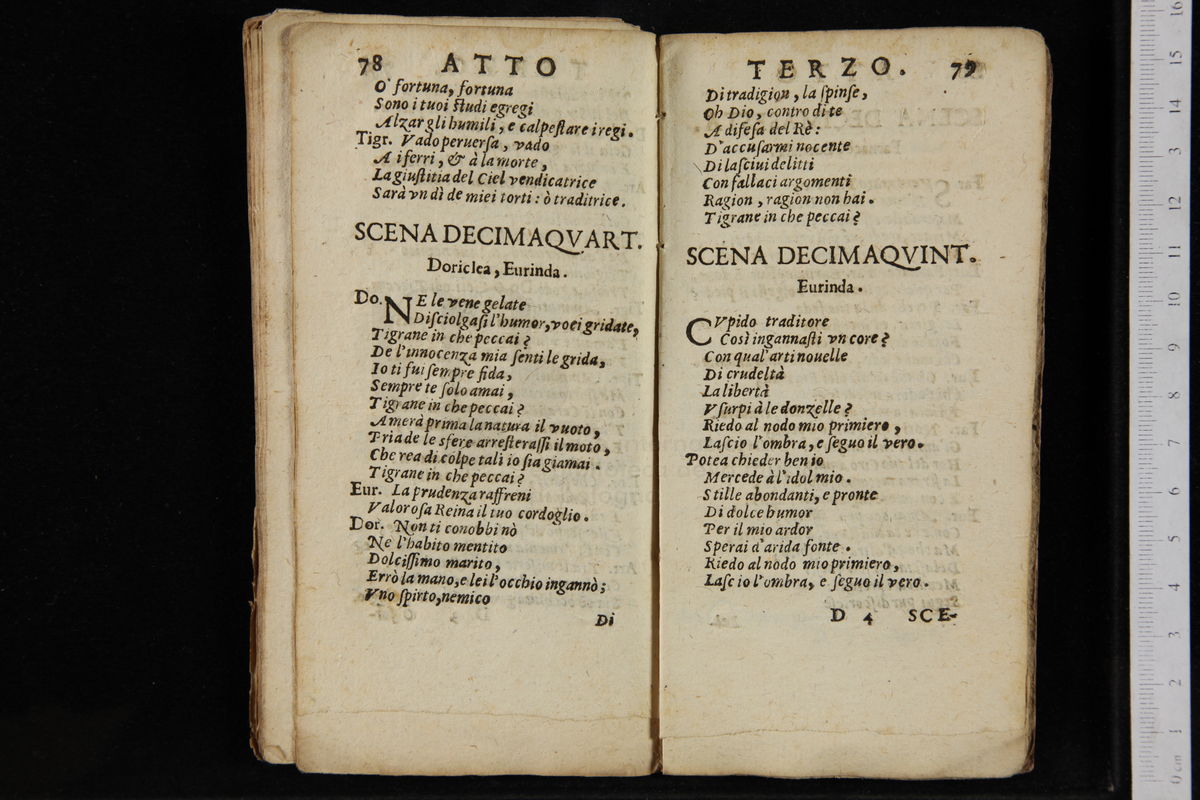 78 ATTO
O' fortuna, fortuna
Sono i tuoi ſtudi egregi
Alzar gli humili, e calpeſtare i regi.
Tigr. Vado peruerſa, vado
A i ferri, & à la morte,
La giuſtitia del Ciel vendicatrice
Sarà vn dì de miei torti: ò traditrice.
SCENA DECIMAQVART.
Doriclea, Eurinda.
Do. NE le vene gelate
Diſciolgaſi l'humor, voci gridate,
Tigrane in che peccai?
De l'innocenza mia ſenti le grida,
Io ti fui ſempre fida,
Sempre te ſolo amai,
Tigrane in che peccai?
Amerà prima la natura il vuoto,
Pria de le sfere arreſteraſſi il moto,
Che rea di colpe tali io ſia giamai.
Tigrane in che peccai?
Eur. La prudenza raffreni
Valoroſa Reina il tuo cordoglio.
Dor. Non ti conobbi nò
Ne l'habito mentito
Dolciſſimo marito,
Errò la mano, e lei l'occhio ingannò;
Vno ſpirto, nemico
Di
TERZO. 79
Di tradigion, la ſpinſe,
Oh Dio, contro di te
A difeſa del Rè:
D'accuſarmi nocente
Di laſciui delitti
Con fallaci argomenti
Ragion, ragion non hai.
Tigrane in che peccai?
SCENA DECIMAQVINT.
Eurinda.
CVpido traditore
Così ingannaſti vn core?
Con qual'arti nouelle
Di crudeltà
La libertà
Vſurpi à le donzelle?
Riedo al nodo mio primiero,
Laſcio l'ombra, e ſeguo il vero.
Potea chieder ben io
Mercede à l'idol mio.
Stille abondanti, e pronte
Di dolce humor
Per il mio ardor
Sperai d'arida fonte.
Riedo al nodo mio primiero,
Laſcio l'ombra, e ſeguo il vero.
D 4 SCE-
0 cm 1 2 3 4 5 6 7 8 9 10 11 12 13 14 15 16